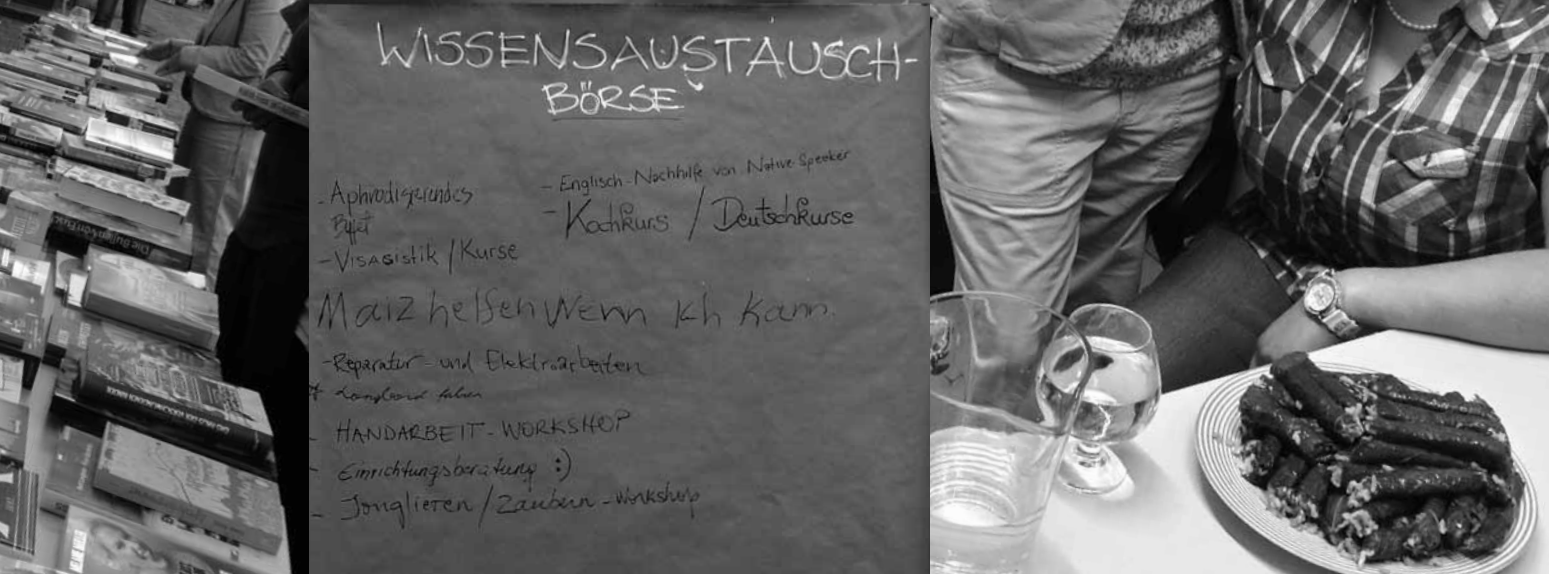 WISSENSAUSTAUSCH-
BÖRSE
- Aphrodisierendes
Büfet
- VISAGISTIK / KURSE
- Englisch-Nachhilfe von Native-Speeker
- Kochkurs / Deutschkurse
Maiz helfen Wenn ich kann.
- Reparatur- und Elektroarbeiten
* Longboard fahren
- HANDARBEIT-WORKSHOP
- Einrichtungsberatung :)
- Jonglieren / Zaubern-Workshop